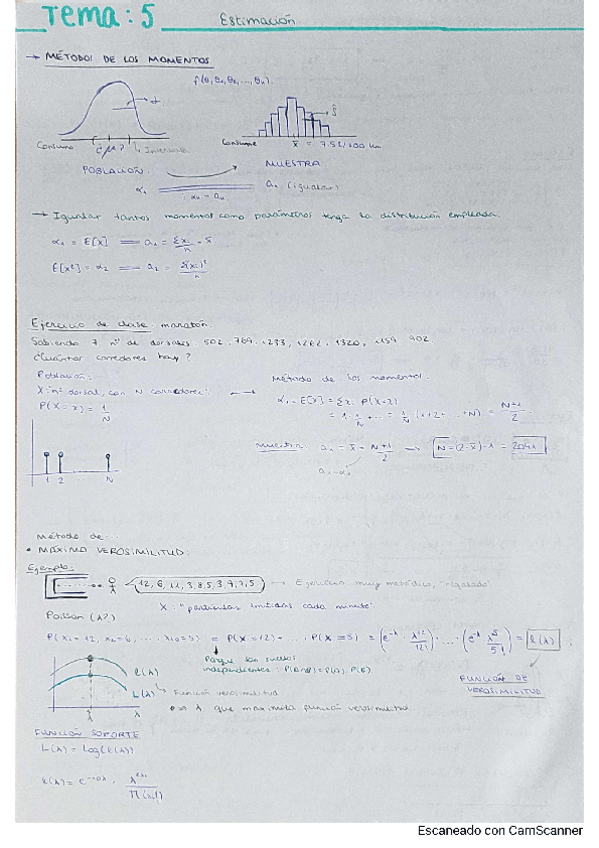 Tema: 5
Estimación
→ MÉTODOS DE LOS MOMENTOS
f(θ, θ₂, θ₃, ..., θₙ).
Consumo ¿μ?
Consumo x̄ = 7.5L/100 km
POBLACIÓN MUESTRA
α₁ a₁ (igualar)
→ Igualar tantos momentos como parámetros tenga la distribución empleada.
α₁ = E[X] = a₁ = Σxᵢ/n = x̄
E[X²] = α₂ = a₂ = Σ(xᵢ)²/n
Ejercicio de clase: maratón
Sabiendo 7 nº de dorsales 502, 769, 1233, 1262, 1320, 1159, 902
¿Cuántos corredores hay?
Población:
X: nº dorsal, con N corredores
P(X = x) = 1/N
1 2 N
Método de los momentos.
α₁ = E[X] = Σxᵢ P(X=x)
= 1·1/N + ... = 1/N (1+2+...+N) = N+1/2
muestra: a₁ = x̄ = N+1/2 → N = (2·x̄)-1 = 2041
a₁ = α₁
Método de...
• MÁXIMA VEROSIMILITUD:
Ejemplo:
12, 6, 11, 3, 8, 5, 3, 9, 7, 5 → Ejercicio muy metódico, "regalado"
X: "partículas emitidas cada minuto"
Poisson (λ?)
P(x₁ = 12, x₂ = 6, ..., x₁₀ = 5) = P(X = 12) · ... · P(X = 5) = (e^-λ · λ¹²/12!) · ... · (e^-λ λ⁵/5!) = l(λ)
Porque son sucesos
independientes: P(A∩B) = P(A)·P(B)
FUNCIÓN DE
VEROSIMILITUD
l(λ)
L(λ) → Función verosimilitud
λ que maximiza función verosimilitud
λ
FUNCIÓN SOPORTE
L(λ) = Log(l(λ))
Escaneado con CamScanner